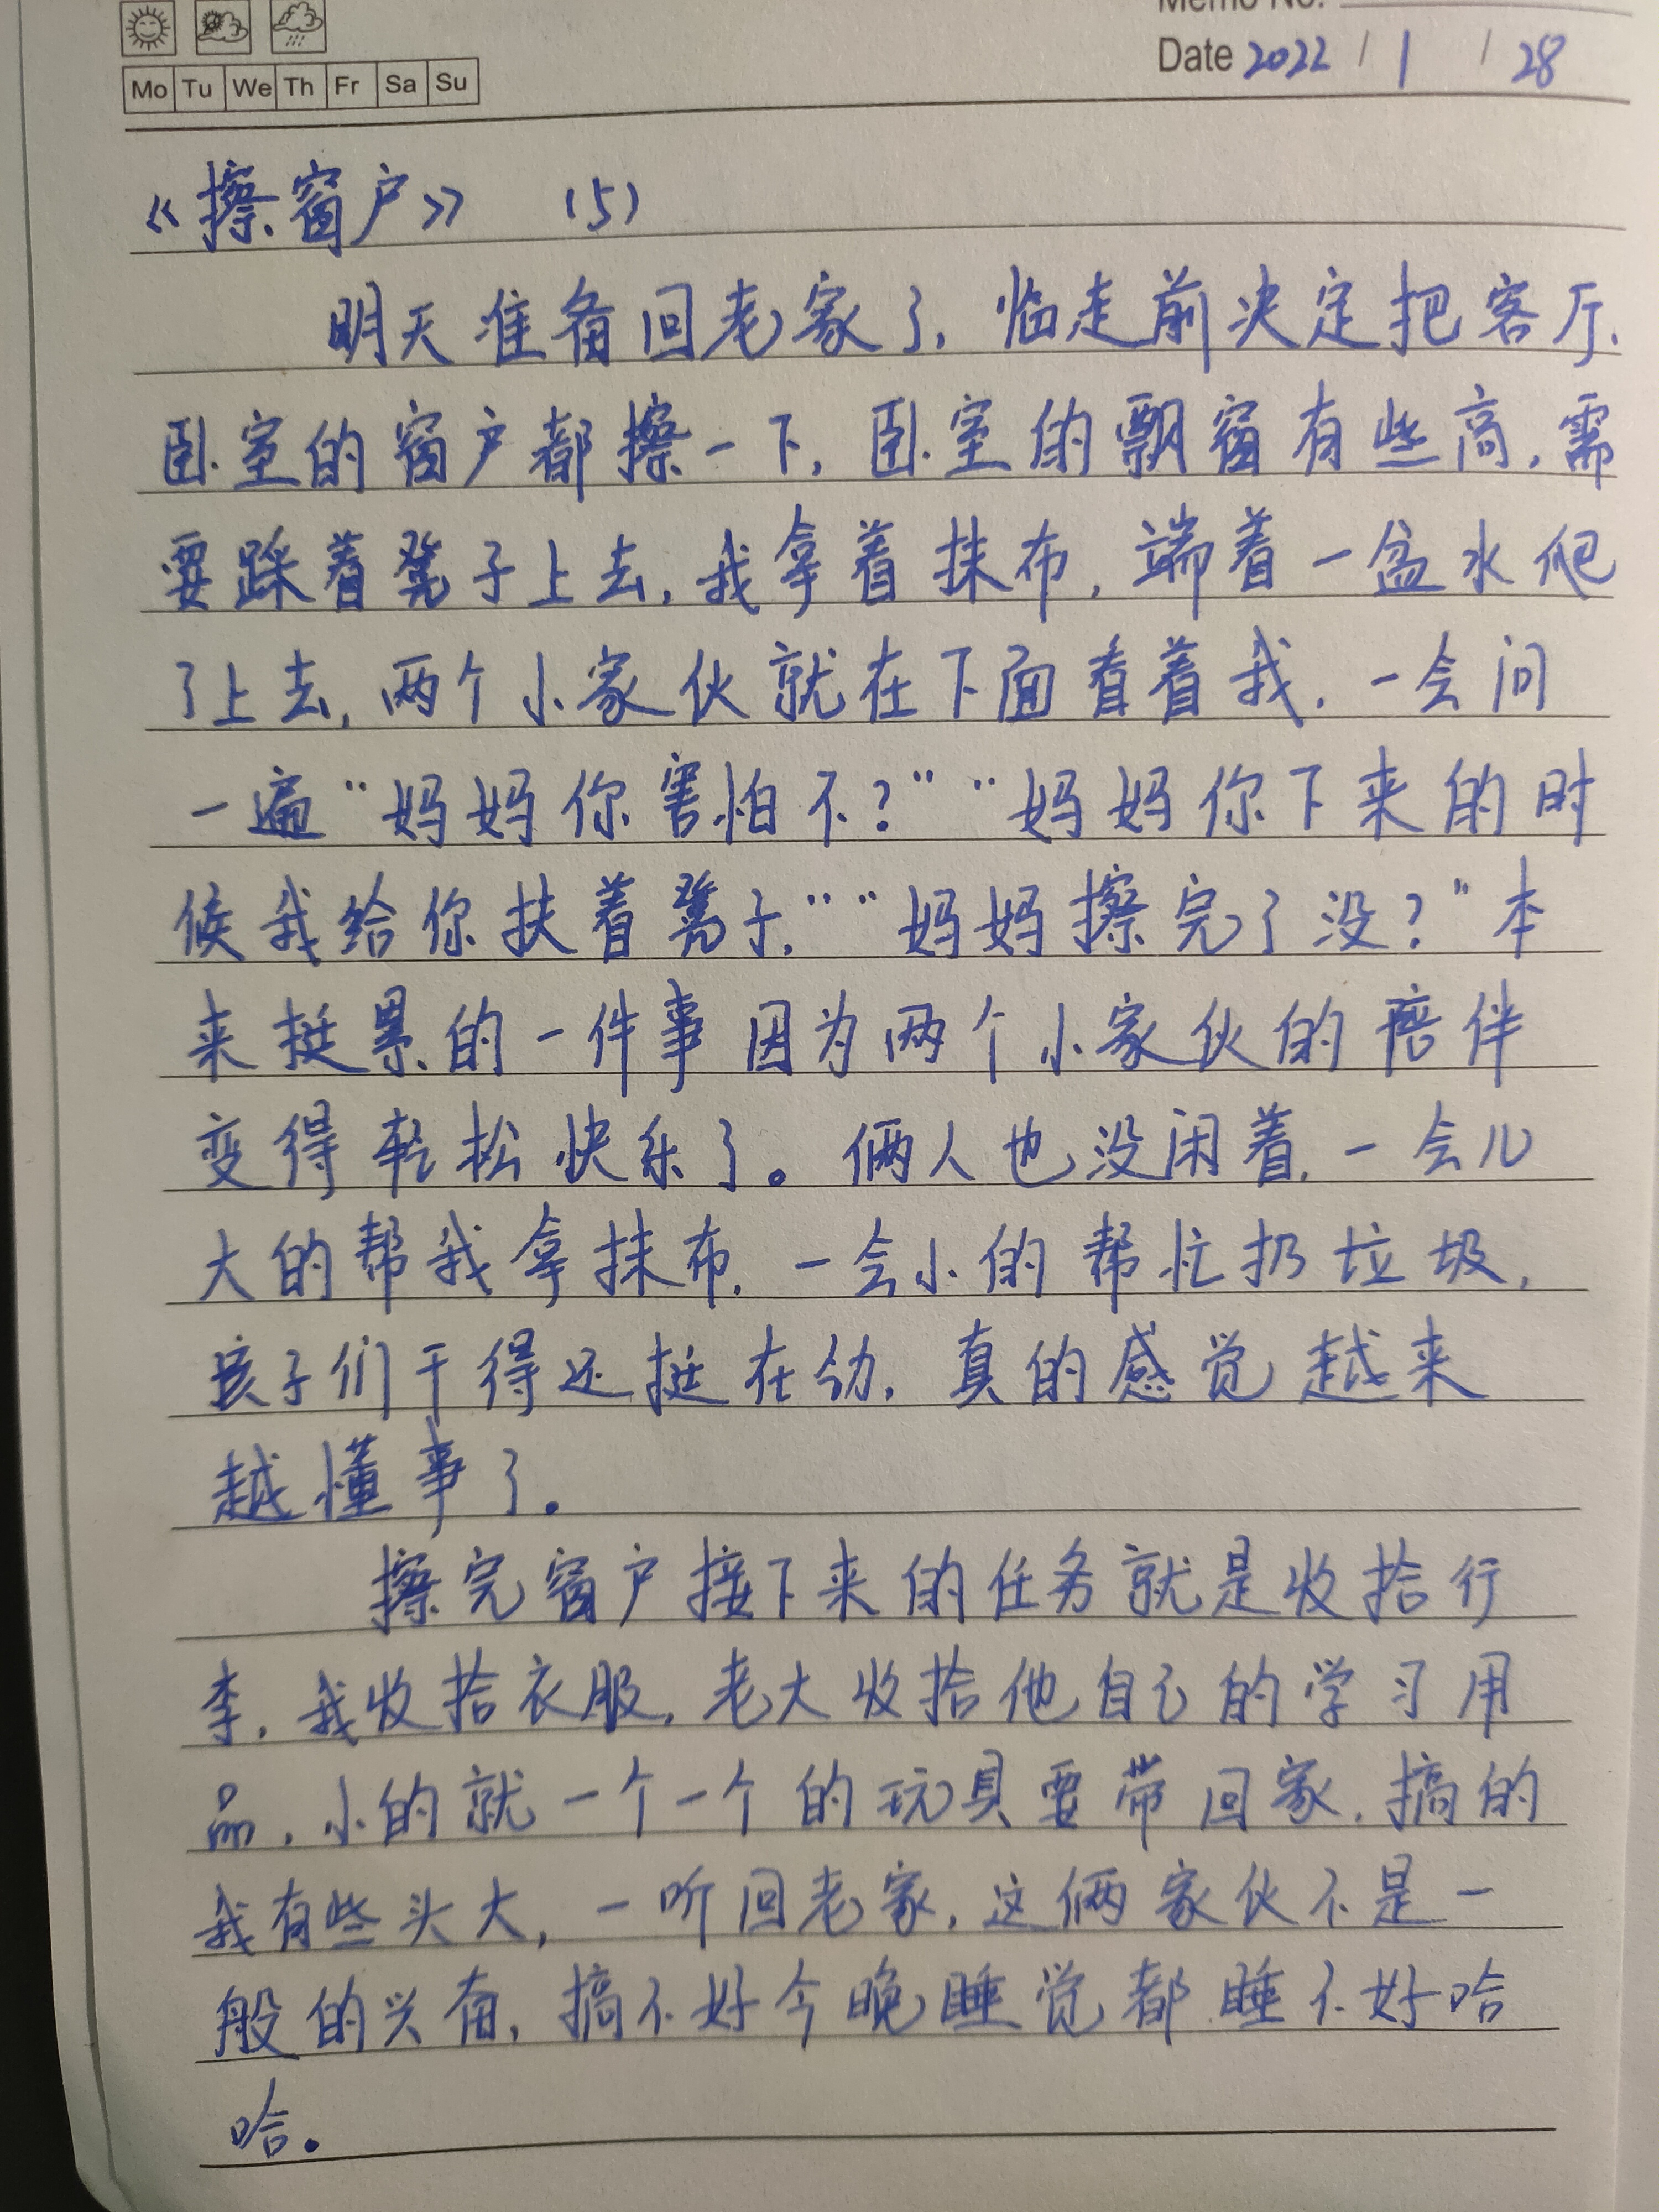 Memo No.
Mo Tu We Th Fr Sa Su
Date 2022 / 1 / 28
《擦窗户》 (5)
明天准备回老家了,临走前决定把客厅、
卧室的窗户都擦一下,卧室的飘窗有些高,需
要踩着凳子上去,我拿着抹布,端着一盆水爬
了上去,两个小家伙就在下面看着我,一会问
一遍“妈妈你害怕不?”“妈妈你下来的时
候我给你扶着凳子,”“妈妈擦完了没?”本
来挺累的一件事因为两个小家伙的陪伴
变得轻松快乐了。俩人也没闲着,一会儿
大的帮我拿抹布,一会小的帮忙扔垃圾,
孩子们干得还挺在劲,真的感觉越来
越懂事了。
擦完窗户接下来的任务就是收拾行
李,我收拾衣服,老大收拾他自己的学习用
品,小的就一个一个的玩具要带回家,搞的
我有些头大,一听回老家,这俩家伙不是一
般的兴奋,搞不好今晚睡觉都睡不好哈
哈。